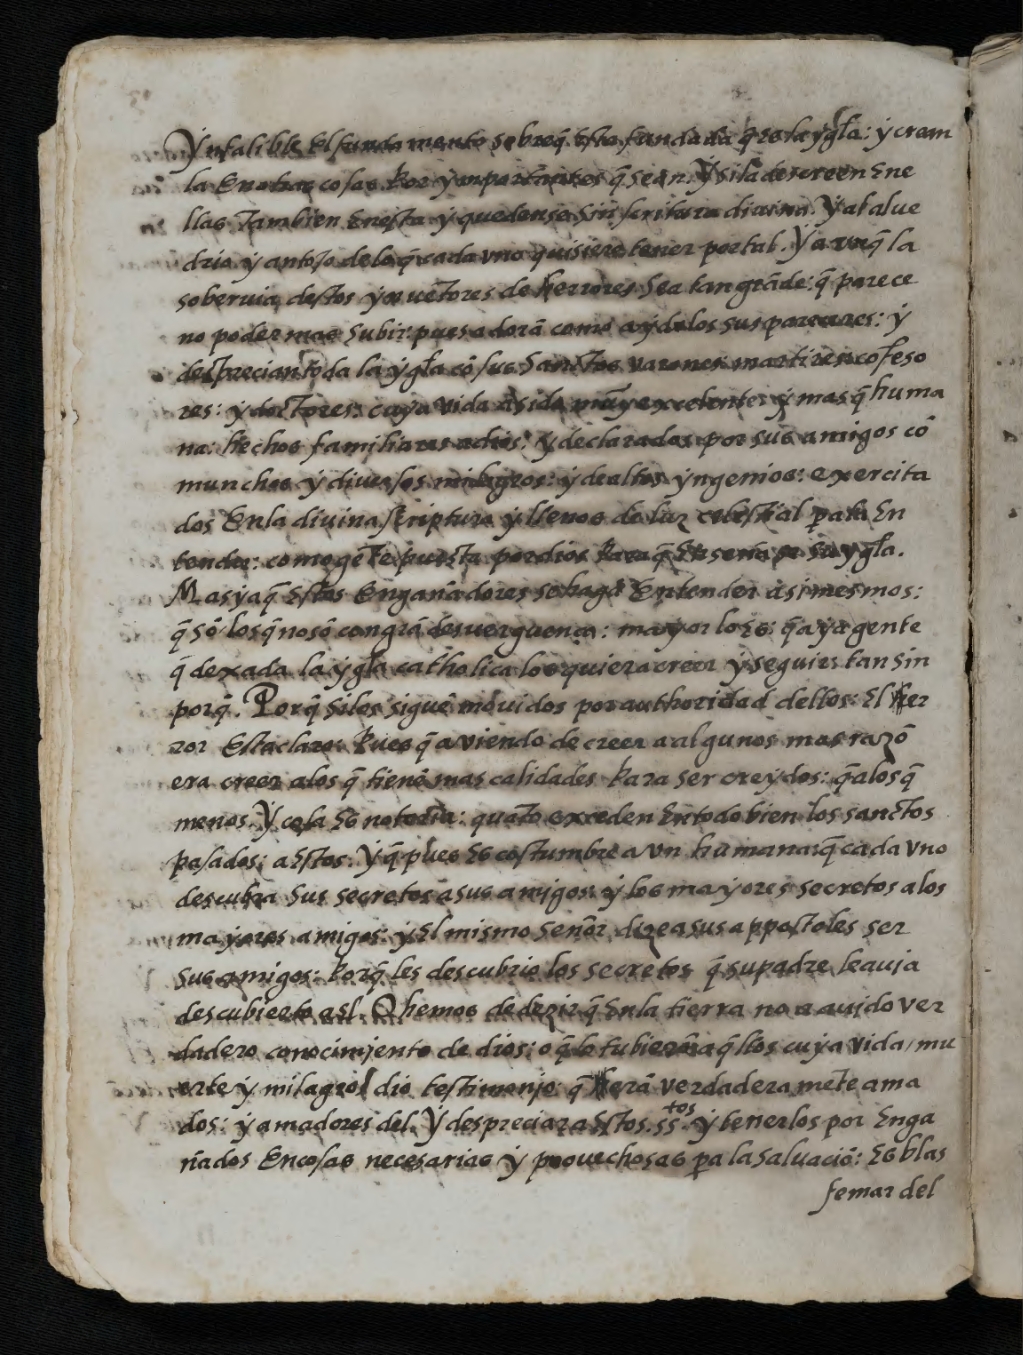 Ynfalible El fundamento sobreq̄ Esta fundada q̄ es la ygła: y crean
la En otras cosas por ymportantes q̄ sean. Y si la descreen Ene
llas tambien Enesta y quedense sin scritura divina. Y al alue
drio y antojo delo q̄ cada vno quisiere tener por tal. Y a vnq̄ la
soberuia destos ynuetores de herrores sea tan grāde: q̄ parece
no poder mas subir: pues adorā como a ydolos sus pareceres: y
desprecian toda la ygła cō sus Sanctos varones martires cōfeso
res: y doctores: cuya vida a sido muy excelente: y mas q̄ huma
na: hechos familiares a dios: y declarados por sus amigos cō
munchos y diuersos milagros: y de altos yngenios: exercita
dos Enla diuina scriptura y llenos de luz celestial pa la En
tender: como gēte puesta por dios para q̄ Enseñase su ygła.
Mas ya q̄ Estos Engañadores se hagā Entender a si mesmos:
q̄ sō los q̄ no sō con grā desuerguenca: mayor lo Es: q̄ aya gente
q̄ dexada la ygła catholica los quiera creer y seguir: tan sin
porq̄. Porq̄ si los siguē mouidos por authoridad dellos: El her
ror Esta claro: Pues q̄ aviendo de creer a algunos mas razō
era creer alos q̄ tienē mas calidades para ser creydos: q̄ alos q̄
menos. Y cosa Es notoria: quāto exceden En todo bien los sanctos
pasados: a Estos. Y q̄ pues Es costumbre a vn humana: q̄ cada vno
descubra sus secretos a sus amigos: y los mayores secretos a los
mayores amigos: y El mismo señor dize a sus appostoles ser
sus amigos: Porq̄ les descubrio los secretos q̄ su padre le auia
descubierto a El. O hemos de dezir q̄ Enla tierra no a auido ver
dadero conocimiento de dios: o q̄ lo tubierō aq̄llos cuya vida, mu
erte y milagros dio testimonjo: q̄ Erā verdadera mēte ama
dos: y amadores del. Y despreciar a Estos. ss^tos y tenerlos por Enga
ñados En cosas necesarias y prouechosas pa la saluaciō: Es blas
femar del